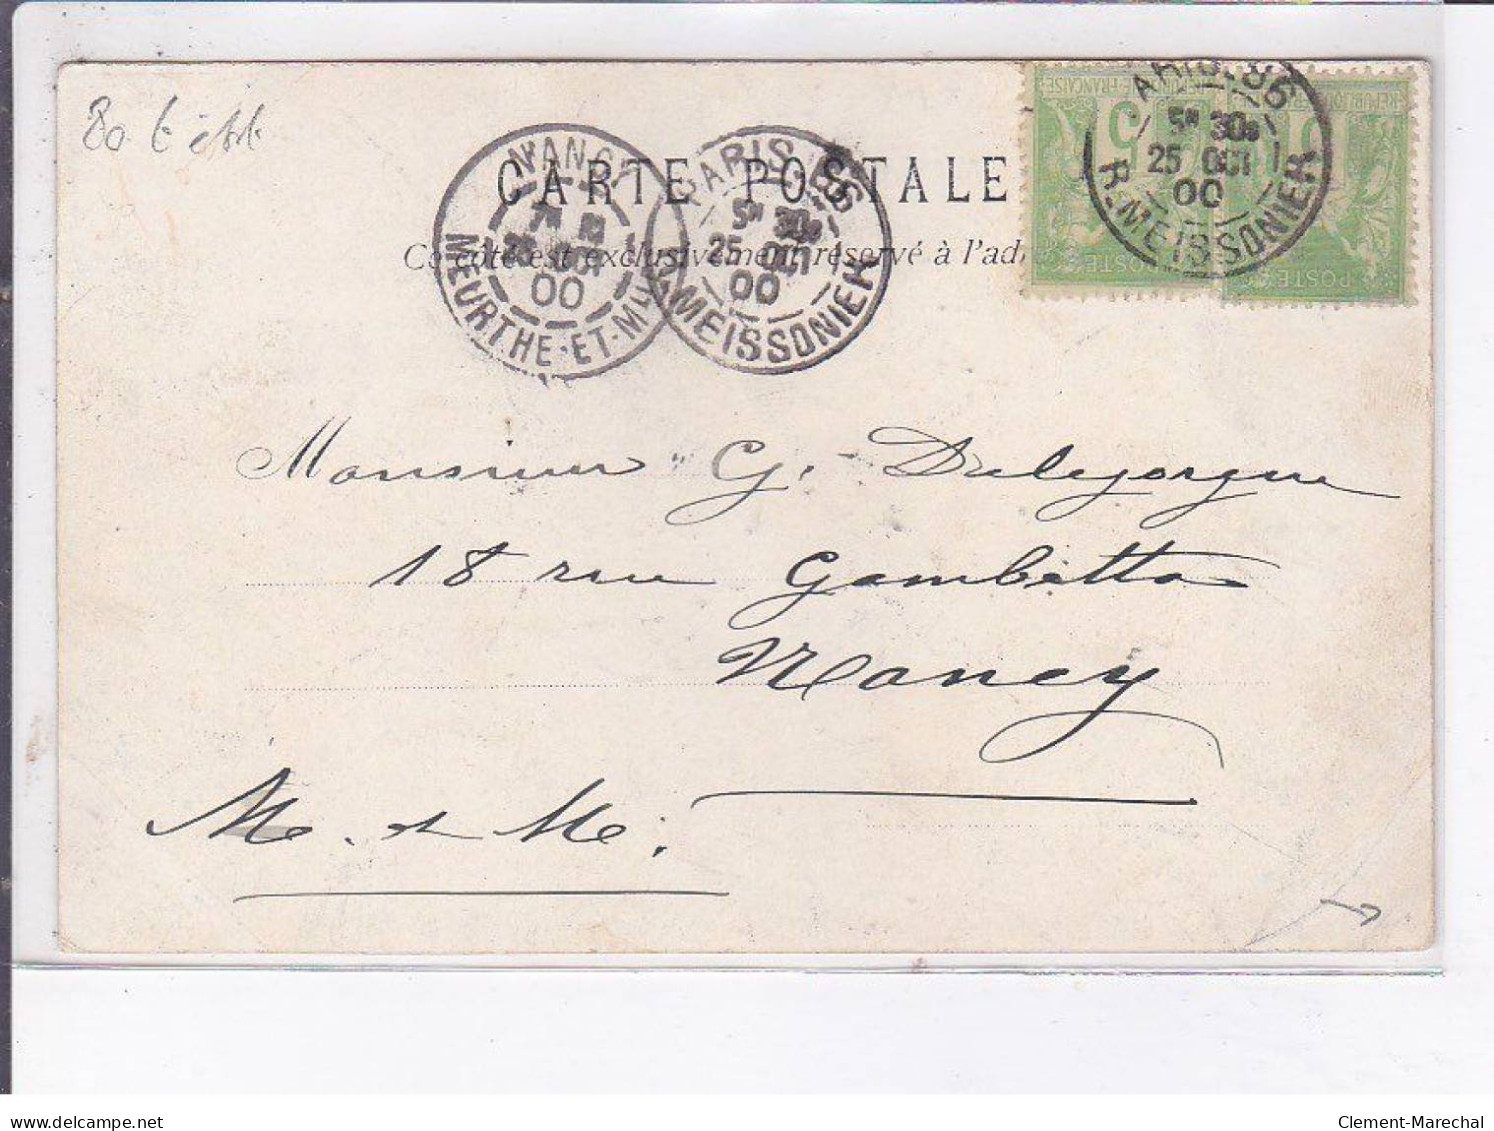 80 t
CARTE POSTALE
Ce côté est exclusivement réservé à l'ad
NANCY
7M
26 OCT
00
MEURTHE-ET-M
PARIS-86
5M 30S
25 OCT
00
R. MEISSONIER
RÉPUBLIQUE FRANÇAISE
5
POSTES
PARIS-86
5M 30S
25 OCT
00
R. MEISSONIER
Monsieur G. Delegorgue
18 rue Gambetta
Nancy
M. & Me.
delcampe.net
Clement-Marechal